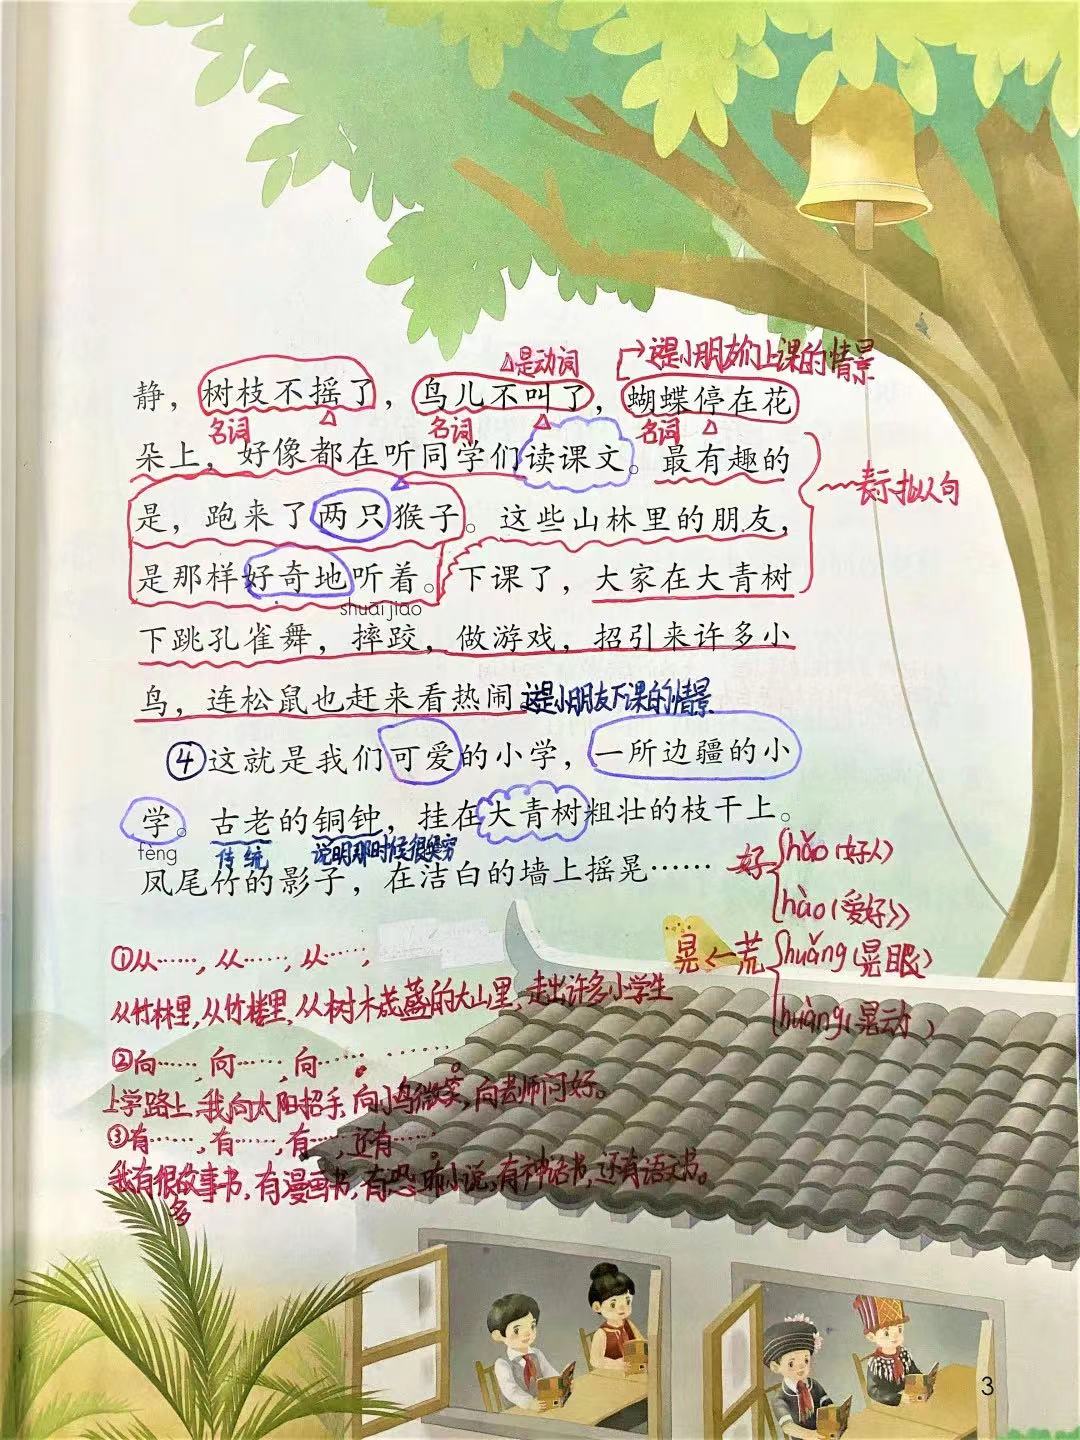 △是动词
这是小朋友们上课的情景
静，树枝不摇了，鸟儿不叫了，蝴蝶停在花
名词 名词 名词
朵上，好像都在听同学们读课文。最有趣的
表示拟人句
是，跑来了两只猴子。这些山林里的朋友，
是那样好奇地听着。下课了，大家在大青树
shuāi jiāo
下跳孔雀舞，摔跤，做游戏，招引来许多小
鸟，连松鼠也赶来看热闹。这是小朋友下课的情景
④这就是我们可爱的小学，一所边疆的小
学。古老的铜钟，挂在大青树粗壮的枝干上。
fèng
传统 说明那时候很贫穷
凤尾竹的影子，在洁白的墙上摇晃……
好 hǎo（好人）
hào（爱好）
晃 荒 huǎng（晃眼）
huàng（晃动）
①从……，从……，从……，
从竹林里，从竹楼里，从树木茂盛的大山里，走出许多小学生
②向……，向……，向……。
上学路上，我向太阳招手，向小鸟微笑，向老师问好。
③有……，有……，有……，还有……。
我有很多故事书，有漫画书，有恐怖小说，有神话书，还有语文书。
3